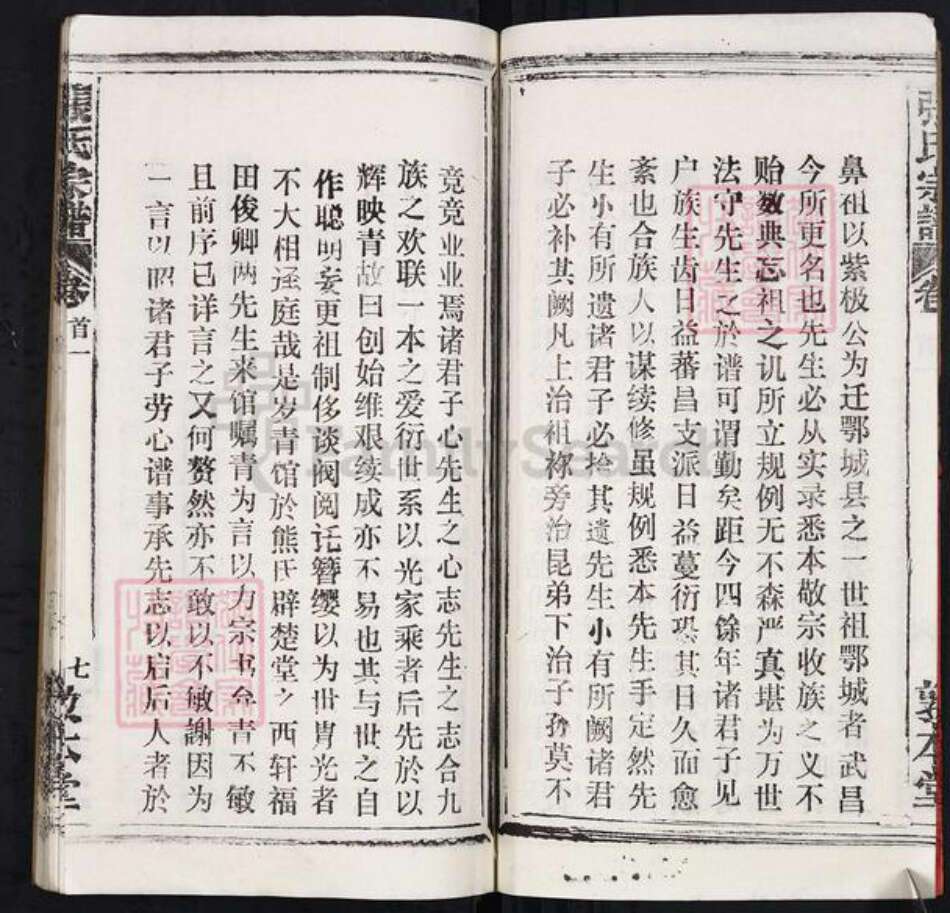 张氏宗譜 卷
鼻祖以紫极公为迁鄂城县之一世祖鄂城者武昌
今所更名也先生必从实录悉本敬宗收族之义不
贻数典忘祖之讥所立规例无不森严真堪为万世
法守先生之於谱可谓勤矣距今四馀年诸君子见
户族生齿日益蕃昌支派日益蔓衍恐其日久而愈
紊也合族人以谋续修虽规例悉本先生手定然先
生小有所遗诸君子必拾其遗先生小有所阙诸君
子必补其阙凡上治祖祢旁治昆弟下治子孙莫不
敦本堂
竞竞业业焉诸君子心先生之心志先生之志合九
族之欢联一本之爱衍世系以光家乘者后先於以
辉映青故曰创始维艰续成亦不易也其与世之自
作聪明妄更祖制侈谈阀阅讬簪缨以为世胄光者
不大相迳庭哉是岁青馆於熊氏辟楚堂之西轩福
田俊卿两先生来馆嘱青为言以力宗书叁青不敏
且前序已详言之又何赘然亦不敢以不敏謝因为
一言以昭诸君子劳心谱事承先志以启后人者於
張氏宗譜 卷首一 七 敦本堂
FamilySearch